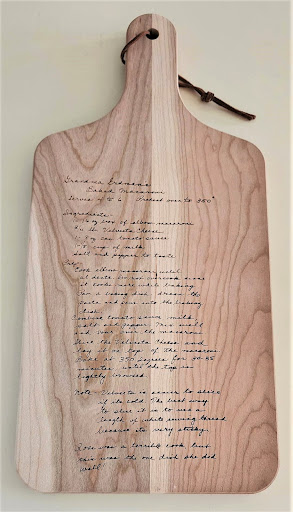 Grandma Erdmans
Baked Macaroni
Serves 4 to 6 Preheat oven to 350°
Ingredients:
box of elbow macaroni
lb Velveeta Cheese
8 oz can tomato sauce
cup of milk
Salt and pepper to taste
Steps:
Cook elbow macaroni until
al dente do not overcook since
it cooks more while baking
in a baking dish. drain the
and put into the baking
dish
Combine tomato sauce milk
salt and pepper. Mix well
and pour over the macaroni
Slice the Velveeta Cheese and
lay it on top of the macaroni
Bake at 350 degrees for 30-35
minutes until the top is
lightly browned
Note: Velveeta is easier to slice
if its cold. The best way
to slice it is to use a
length of white sewing thread
because its very sticky.
Rose was a terrible cook but
this was the one dish she did
well.